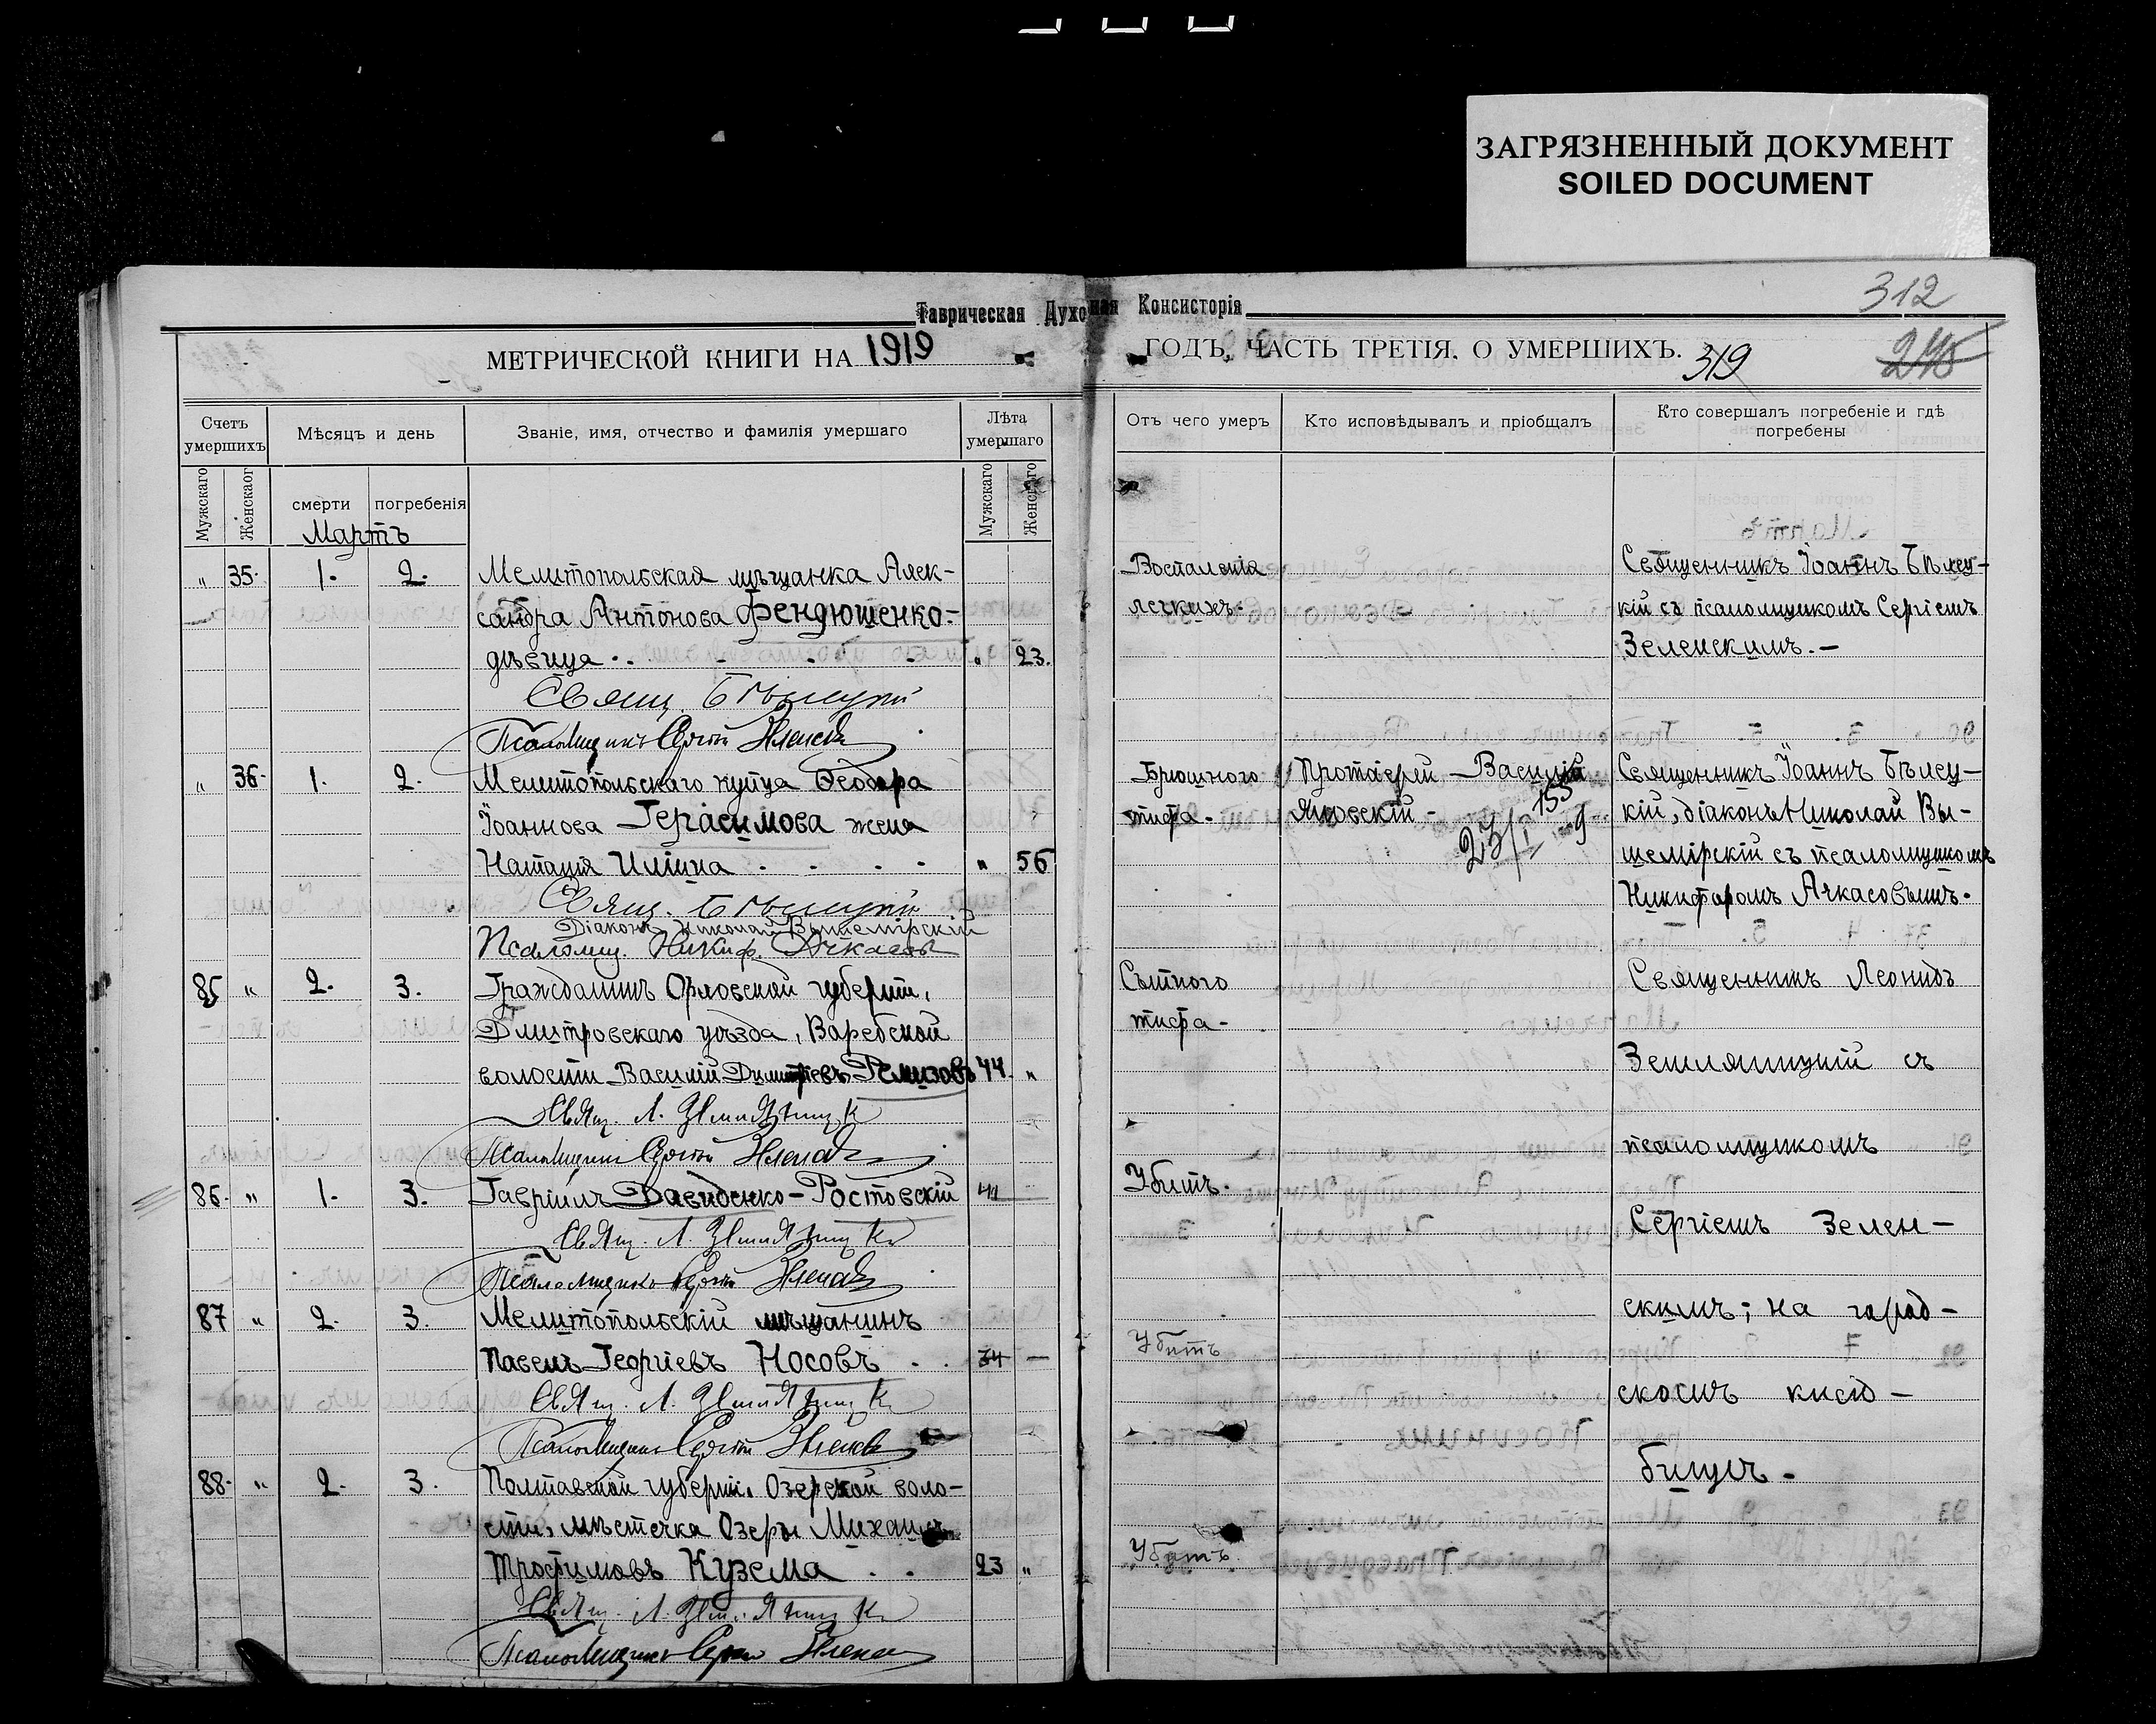 ЗАГРЯЗНЕННЫЙ ДОКУМЕНТ
SOILED DOCUMENT
312
Таврическая Духовная Консисторія
МЕТРИЧЕСКОЙ КНИГИ НА 1919
ГОДЪ, ЧАСТЬ ТРЕТІЯ, О УМЕРШИХЪ.
319
245
Счетъ умершихъ
Мѣсяцъ и день
Званіе, имя, отчество и фамилія умершаго
Лѣта умершаго
Отъ чего умеръ
Кто исповѣдывалъ и пріобщалъ
Кто совершалъ погребеніе и гдѣ погребены
Мужскаго
Женскаго
смерти
погребенія
Мужскаго
Женскаго
Мартъ
„ 35. 1. 2. Мелитопольская мѣщанка Алек-
сандра Антонова Фендюшенко-
дѣвица . . 23.
Свящ. Бѣлецкій
Псаломщикъ Сергій Зеленскій
Воспаленія
легкихъ.
Священникъ Іоаннъ Бѣлец-
кій съ псаломщикомъ Сергіемъ
Зеленскимъ. —
„ 36. 1. 2. Мелитопольскаго купца Ѳеодора
Іоаннова Герасимова жена
Наталія Иліина . . . . „ 56
Свящ. Бѣлецкій
Діаконъ Николай Вышемірскій
Псаломщ. Никиф. Ачкасовъ
Брюшного
тифа.
Протоіерей Василій
Яновскій
23/I 155
Священникъ Іоаннъ Бѣлец-
кій, діаконъ Николай Вы-
шемірскій съ псаломщикомъ
Никифоромъ Ачкасовымъ.
85 „ 2. 3. Гражданинъ Орловской губерніи,
Дмитровскаго уѣзда,
волости Василій Димитріевъ Ремизовъ 44. „
Свящ. Л. Земляницкій
Псаломщикъ Сергій Зеленскій
Сыпного
тифа.
86. „ 1. 3. Гавріилъ Давиденко-Ростовскій 41
Свящ. Л. Земляницкій
Псаломщикъ Сергій Зеленскій
Убитъ.
87 „ 2. 3. Мелитопольскій мѣщанинъ
Павелъ Георгіевъ Носовъ . . 34 —
Свящ. Л. Земляницкій
Псаломщикъ Сергій Зеленскій
Убитъ
88. „ 2. 3. Полтавской губерніи. Озерской воло-
сти, мѣстечка Озеры Михаилъ
Трофимовъ Кузема . . 23 „
Свящ. Л. Земляницкій
Псаломщикъ Сергій Зеленскій
Убитъ.
Священникъ Леонидъ
Земляницкій съ
псаломщикомъ
Сергіемъ Зелен-
скимъ; на город-
скомъ клад-
бищѣ.